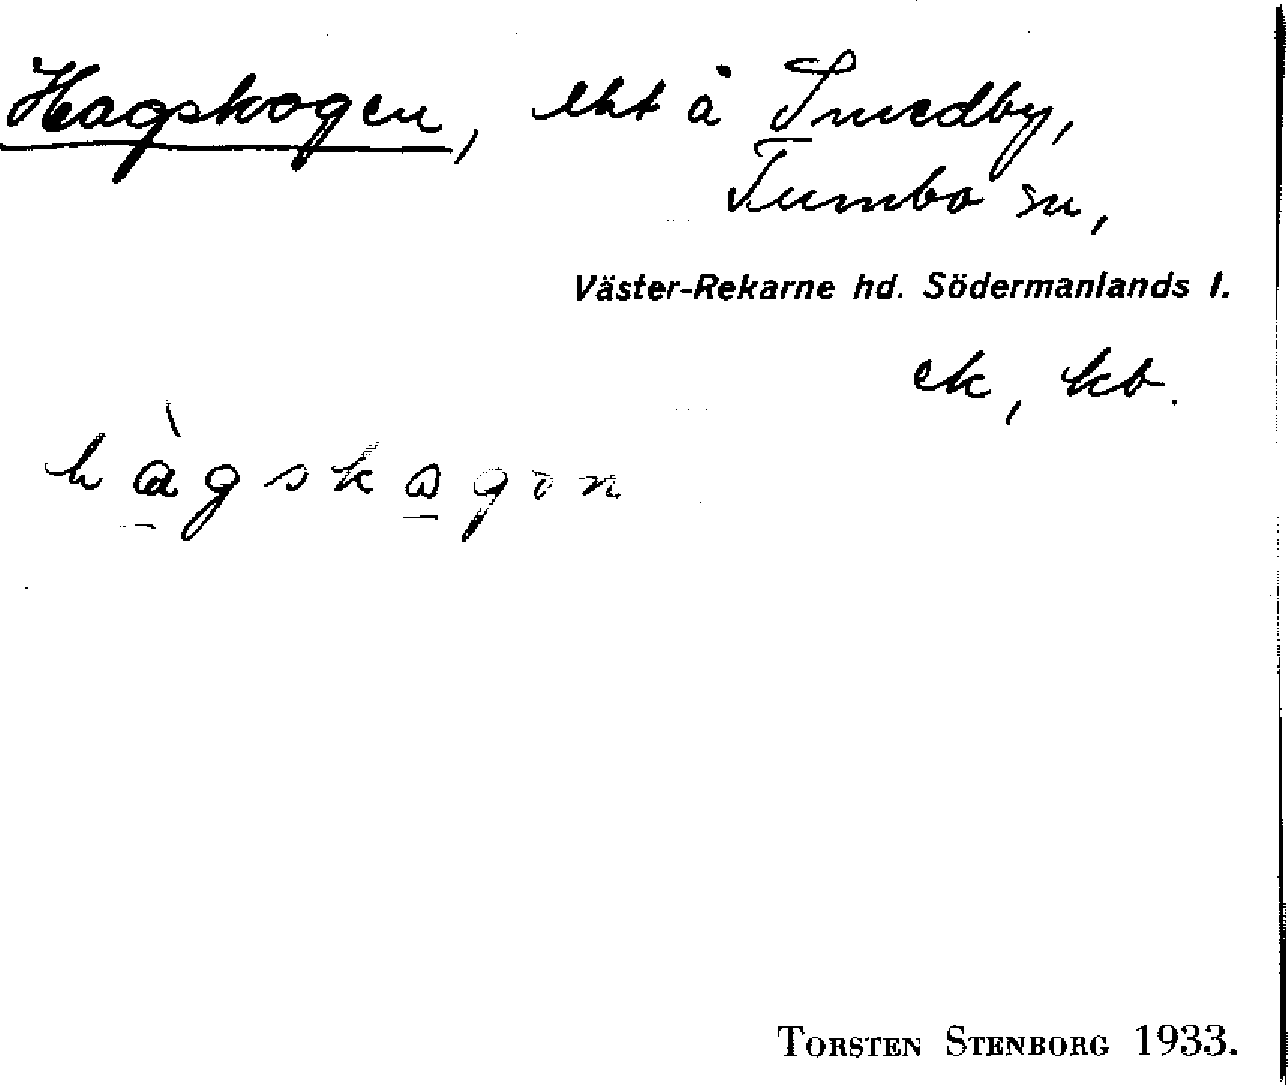 Hagskogen, lht å Smedby,
Tumbo sn,
Väster-Rekarne hd. Södermanlands l.
ek, kb.
hàgskogon
TORSTEN STENBORG 1933.